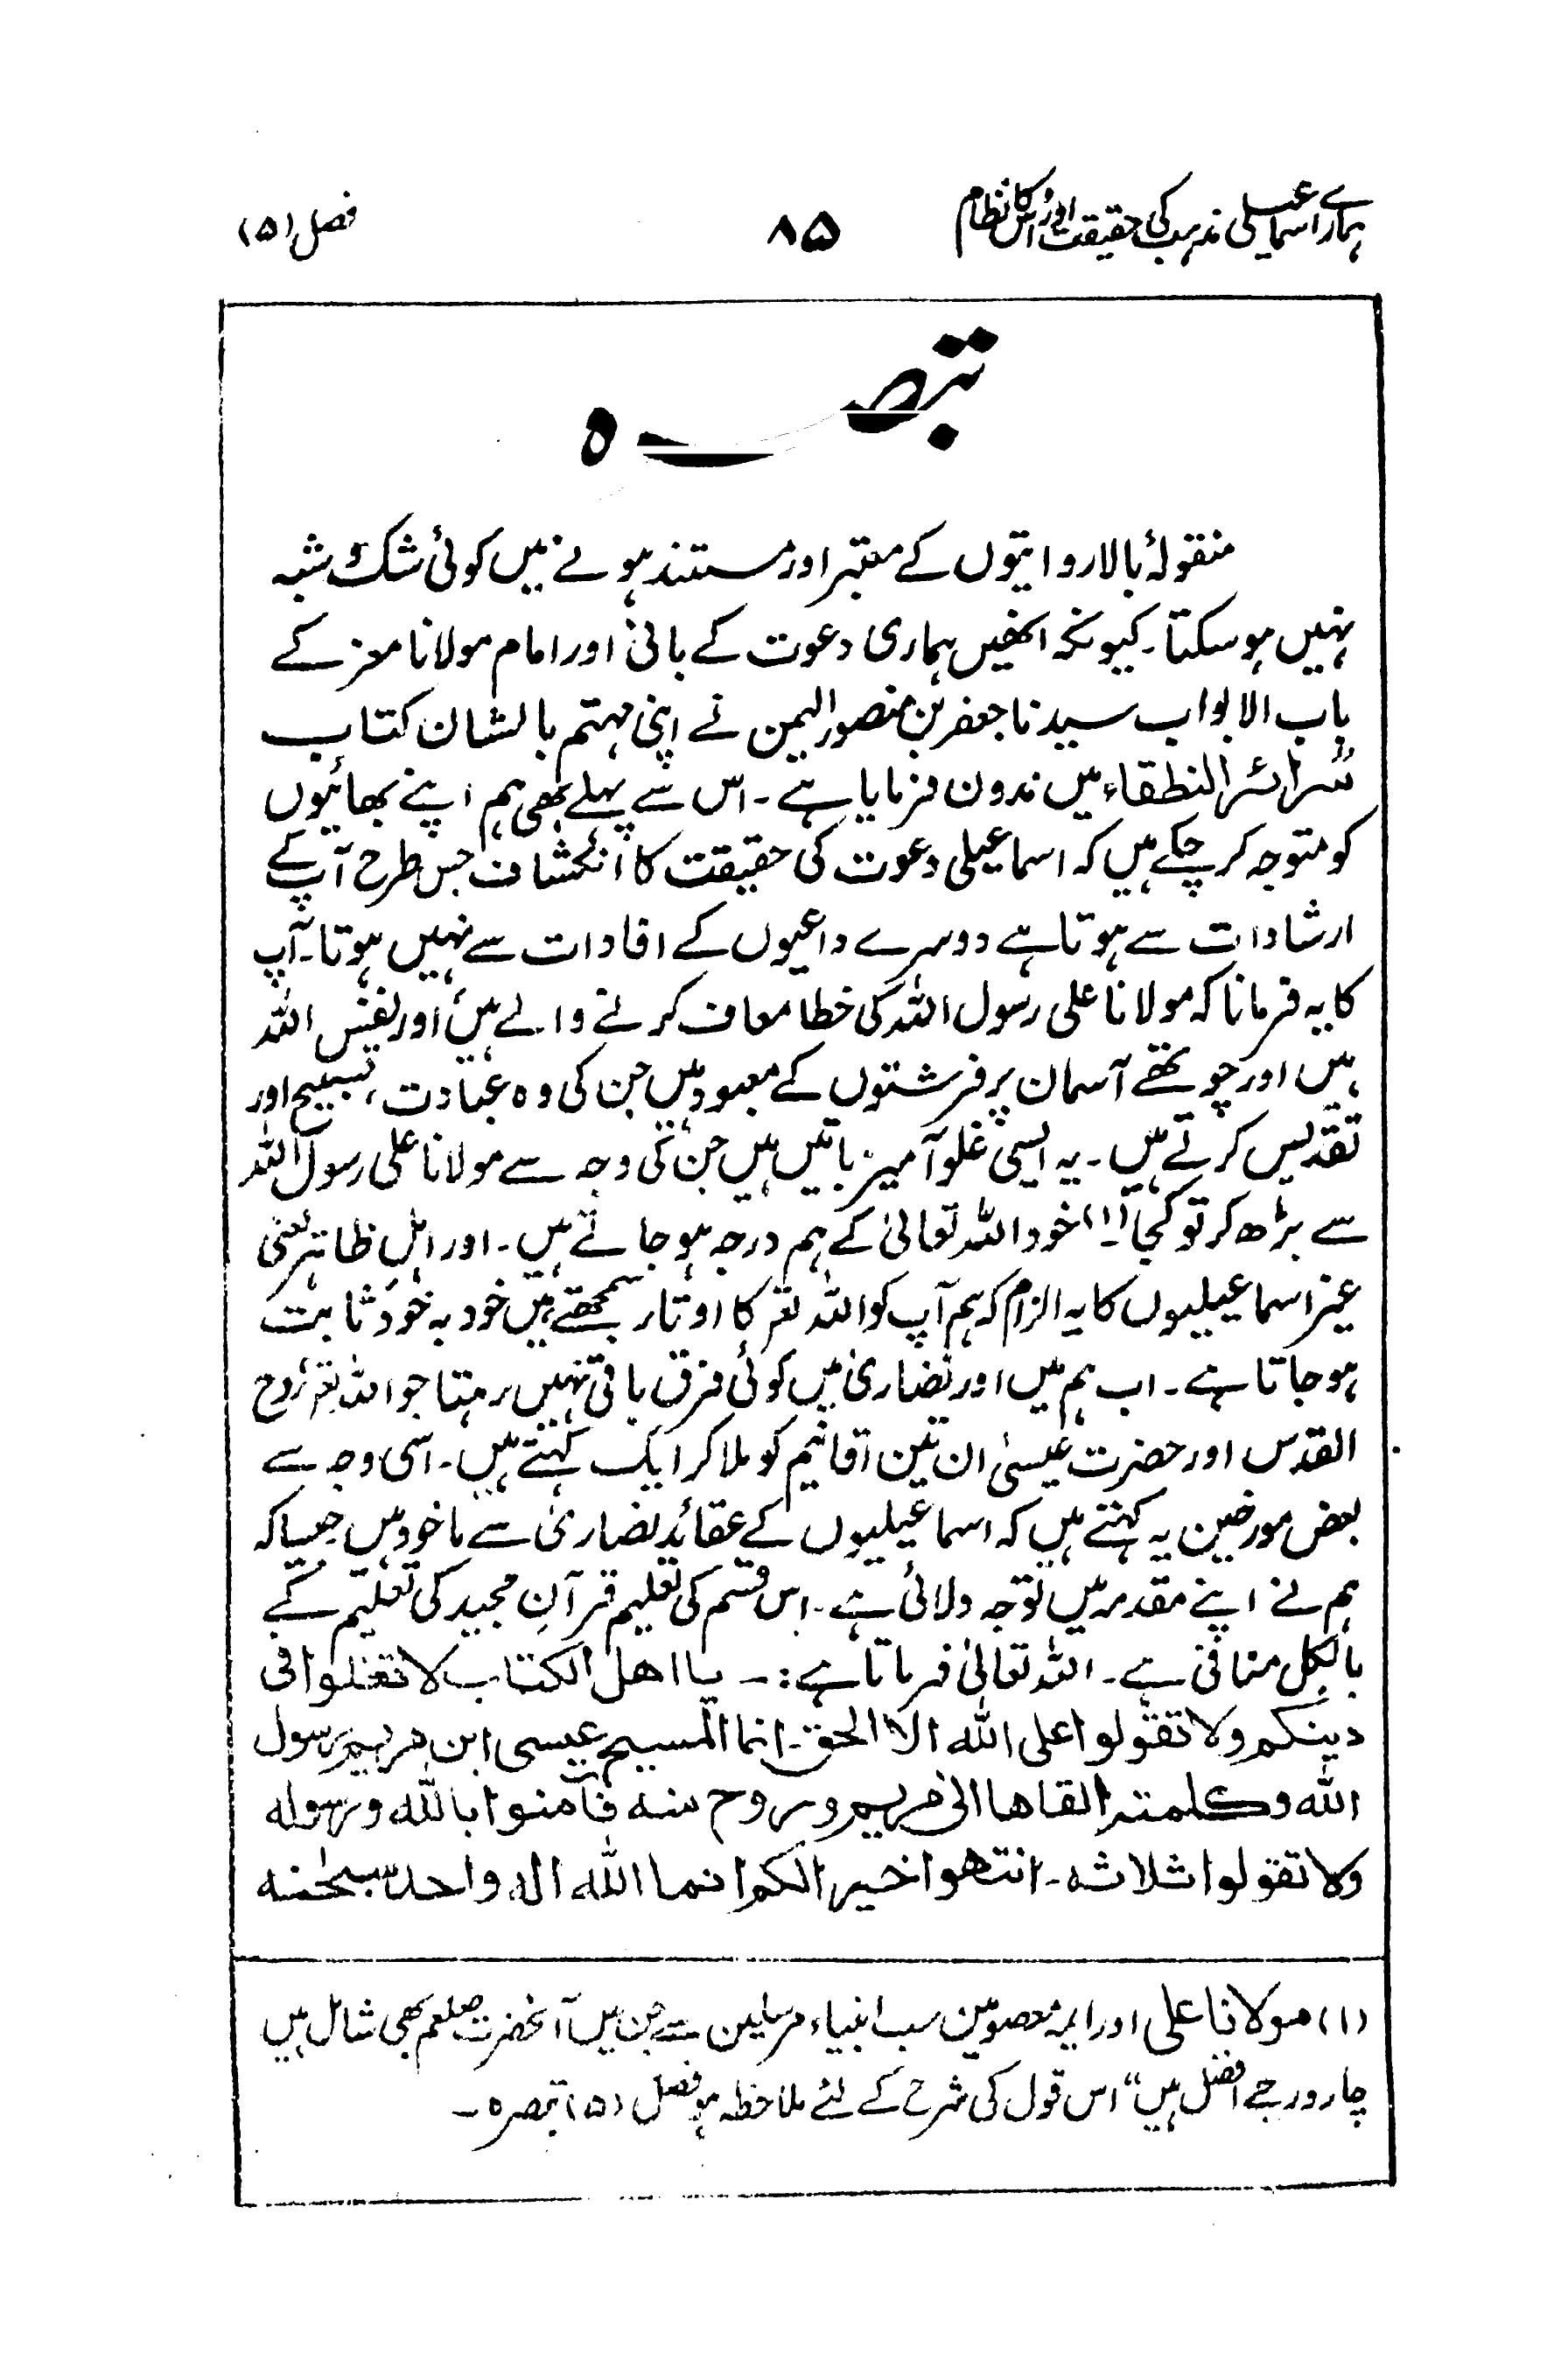 ہمارے اسماعیلی مذہب کی حقیقت اور اس کا نظام
۸۵
فصل (۵)
تبصرہ
منقولۂ بالا روایتوں کے معتبر اور مستند ہونے میں کوئی شک شبہ
نہیں ہوسکتا۔ کیونکہ انھیں ہماری دعوت کے بانی اور امام مولانا معز کے
باب الابواب سیدنا جعفر بن منصور الیمن نے اپنی مہتم بالشان کتاب
سرائر النطقاء میں مدون فرمایا ہے۔ اس سے پہلے بھی ہم اپنے بھائیوں
کو متوجہ کر چکے ہیں کہ اسماعیلی دعوت کی حقیقت کا انکشاف جس طرح آپ کے
ارشادات سے ہوتا ہے دوسرے داعیوں کے افادات سے نہیں ہوتا۔ آپ
کا یہ فرمانا کہ مولانا علی رسول اللہ کی خطا معاف کرنے والے ہیں اور نفس اللہ
ہیں اور چوتھے آسمان پر فرشتوں کے معبود ہیں جن کی وہ عبادت، تسبیح اور
تقدیس کرتے ہیں۔ یہ ایسی غلو آمیز باتیں ہیں جن کی وجہ سے مولانا علی رسول اللہ
سے بڑھ کر تو کجا (۱) خود اللہ تعالیٰ کے ہم درجہ ہو جاتے ہیں۔ اور اہلِ ظاہر یعنی
غیر اسماعیلیوں کا یہ الزام کہ ہم آپ کو اللہ تعہ کا اوتار سمجھتے ہیں خود بہ خود ثابت
ہو جاتا ہے۔ اب ہم میں اور نصاریٰ میں کوئی فرق باقی نہیں رہتا جو اللہ تعہ روح
القدس اور حضرت عیسیٰ ان تین اقانیم کو ملا کر ایک کہتے ہیں۔ اسی وجہ سے
بعض مورخین یہ کہتے ہیں کہ اسماعیلیوں کے عقائد نصاریٰ سے ماخوذ ہیں جیسا کہ
ہم نے اپنے مقدمہ میں توجہ دلائی ہے۔ اس قسم کی تعلیم قرآنِ مجید کی تعلیم کے
بالکل منافی ہے۔ اللہ تعالیٰ فرماتا ہے :۔ یا اهل الکتاب لا تغلوا فی
دینکم ولا تقولوا علی الله الا الحق۔ انما المسیح عیسی ابن مریم رسول
الله وکلمته القاها الی مریم وروح منه فآمنوا بالله ورسوله
ولا تقولوا ثلاثه۔ انتهوا خیرا لکم انما الله اله واحد سبحٰنه
(۱) مولانا علی اور ایمہ معصومین سب انبیاء مرسلین سے جن میں آنحضرت صلعم بھی شامل ہیں
چار درجے افضل ہیں“ اس قول کی شرح کے لئے ملاحظہ ہو فصل (۵) تبصرہ۔